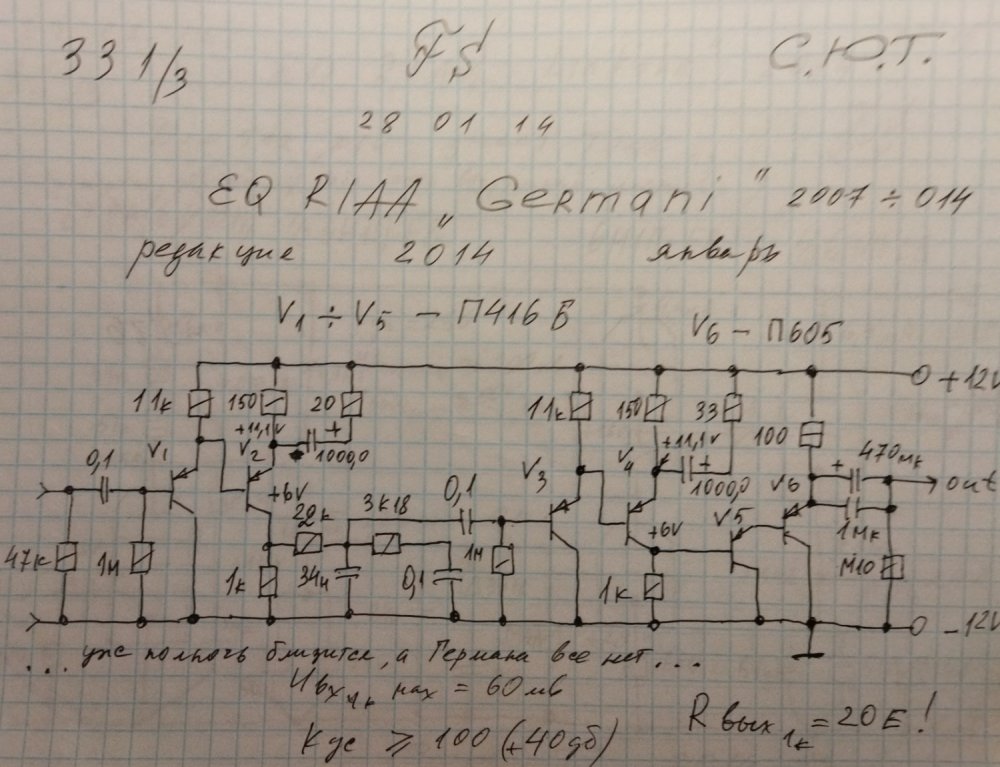 33 1/3 FS С.Ю.Т.
28 01 14
EQ RIAA „Germani" 2007 ÷ 014
редакция 2014 январь
V1 ÷ V5 - П416Б V6 - П605
+12V
11к 150 20 11к 150 33 100
+11,1V +11,1V 470мк
V1 V2 + 1000,0 V3 V4 + 1000,0 V6 + out
0,1 +6V 3к18 0,1 +6V V5
22к 1мк
47к 1м 1к 34н 0,1 1м 1к М10
-12V
... уже полночь близится, а Германа все нет...
Uвх1к мах = 60мв
Rвых1к = 20Е!
Кус ≥ 100 (+40дб)